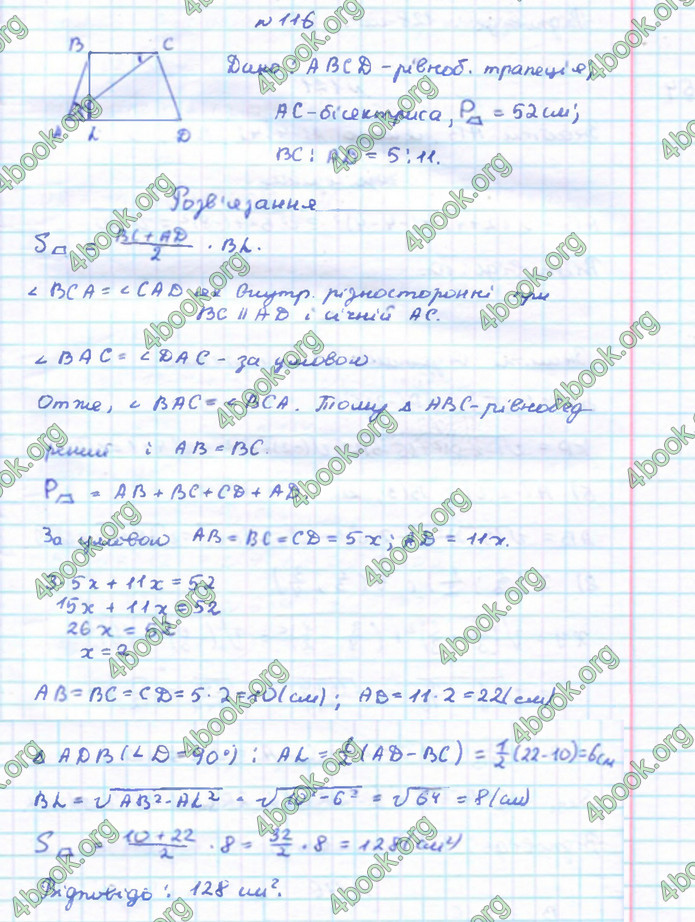 №116
B C
A L D
Дано: ABCD - рівноб. трапеція;
AC - бісектриса, P = 52 см;
BC : AD = 5 : 11.
Розв'язання
S = (BC + AD)/2 · BL.
∠ BCA = ∠ CAD як внутр. різносторонні при
BC || AD і січній AC.
∠ BAC = ∠ DAC - за умовою
Отже, ∠ BAC = ∠ BCA. Тому Δ ABC - рівнобед
рений і AB = BC.
P = AB + BC + CD + AD
За умовою AB = BC = CD = 5x; AD = 11x.
3·5x + 11x = 52
15x + 11x = 52
26x = 52
x = 2
AB = BC = CD = 5 · 2 = 10 (см); AD = 11 · 2 = 22 (см)
Δ ADB (∠ D = 90°): AL = 1/2 (AD - BC) = 1/2 (22 - 10) = 6 см
BL = √(AB² - AL²) = √(10² - 6²) = √64 = 8 (см)
S = (10 + 22)/2 · 8 = 32/2 · 8 = 128 (см²)
Відповідь: 128 см².
4book.org